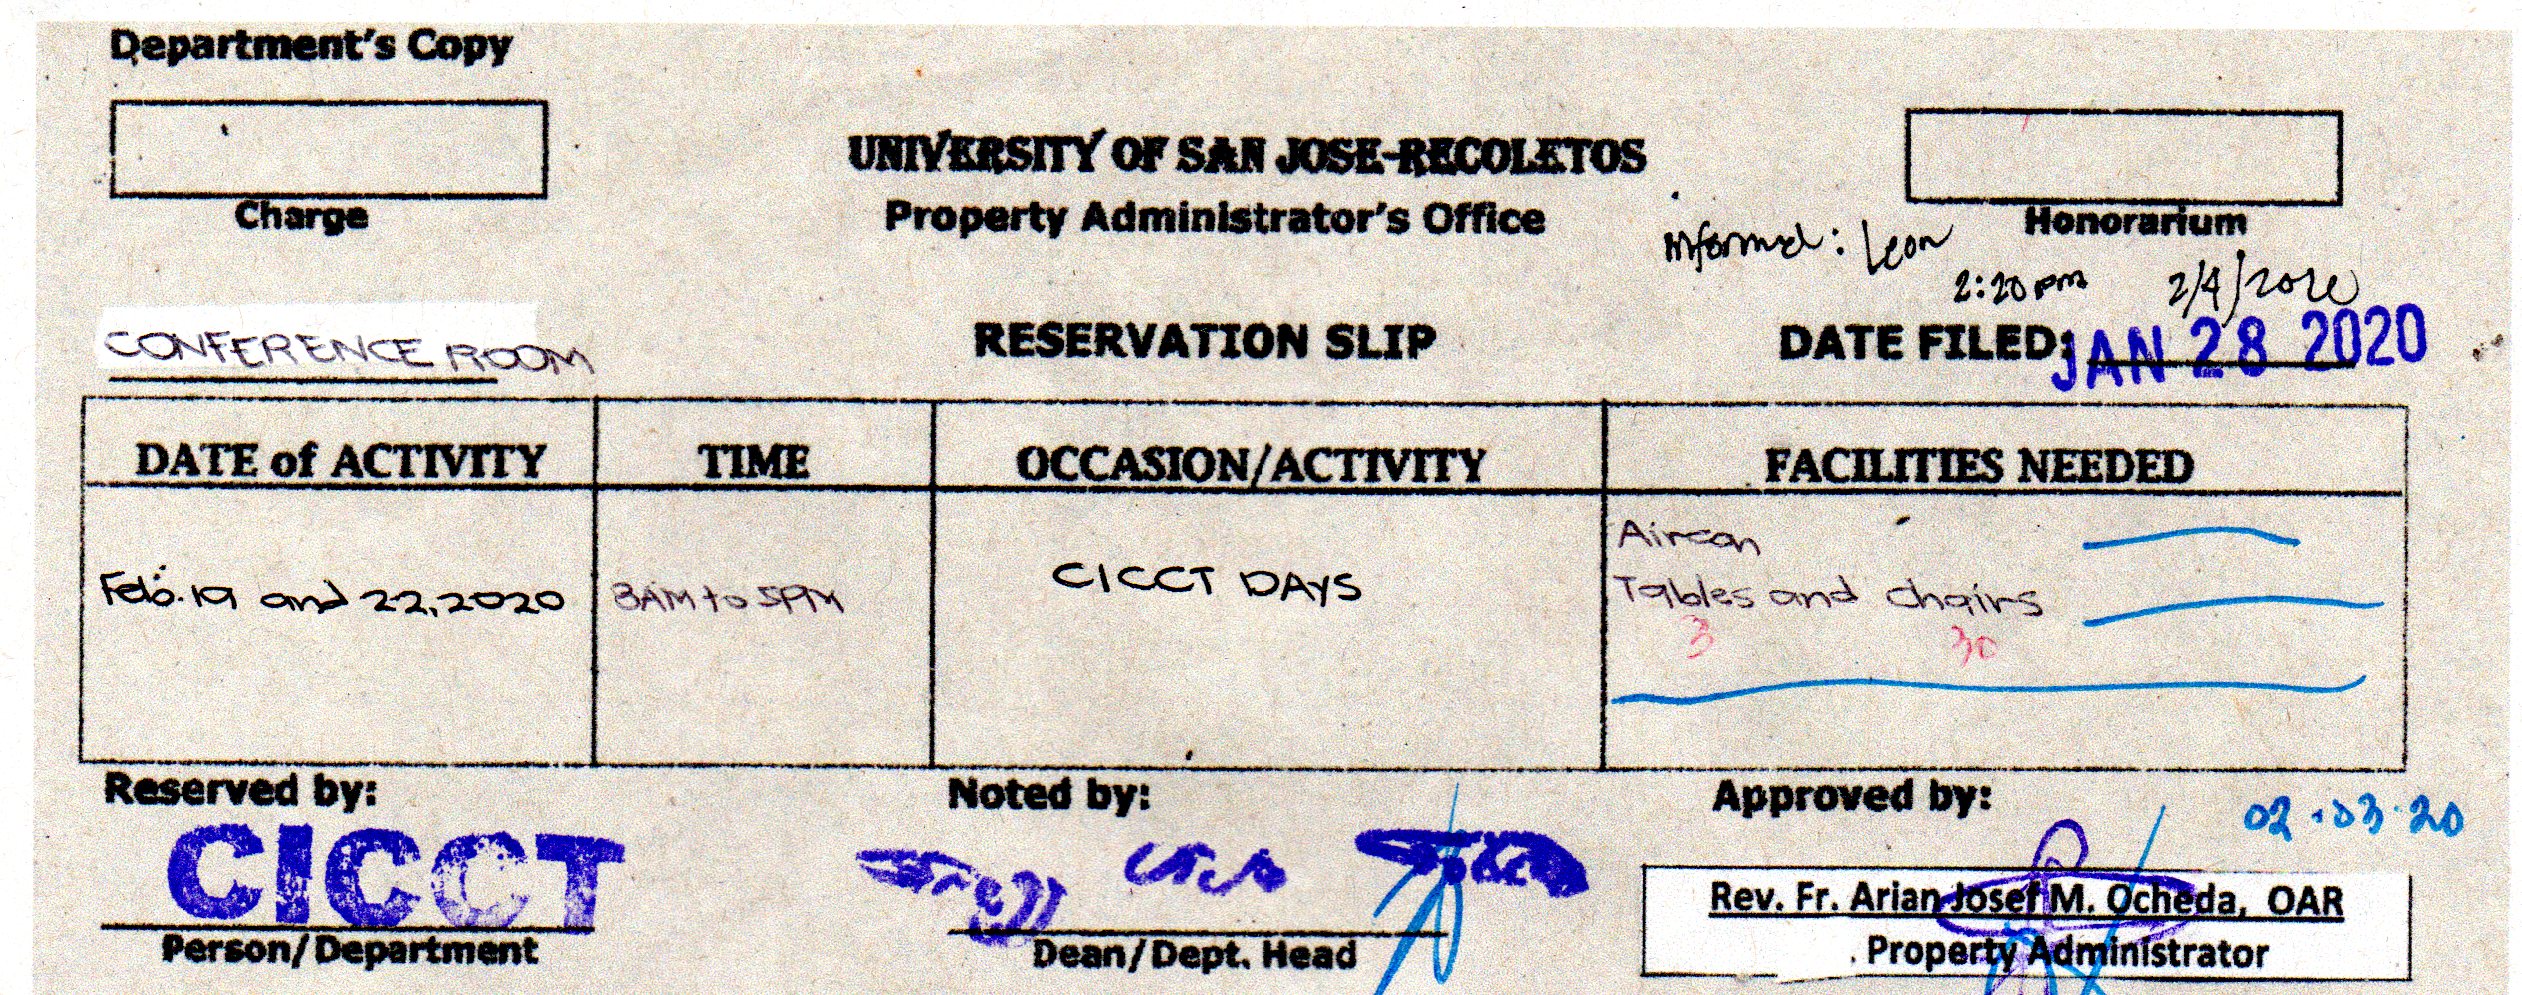 Department's Copy
Charge
UNIVERSITY OF SAN JOSE-RECOLETOS
Property Administrator's Office
Honorarium
Informed: Leon
2:20 pm 2/4/2020
CONFERENCE ROOM
RESERVATION SLIP
DATE FILED: JAN 28 2020
DATE of ACTIVITY TIME OCCASION/ACTIVITY FACILITIES NEEDED
Feb. 19 and 22, 2020 8AM to 5PM CICCT DAYS Aircon
Tables and chairs
3 30
Reserved by: Noted by: Approved by: 02.03.20
CICCT
Person/Department
Dean/Dept. Head
Rev. Fr. Arian Josef M. Ocheda, OAR
Property Administrator